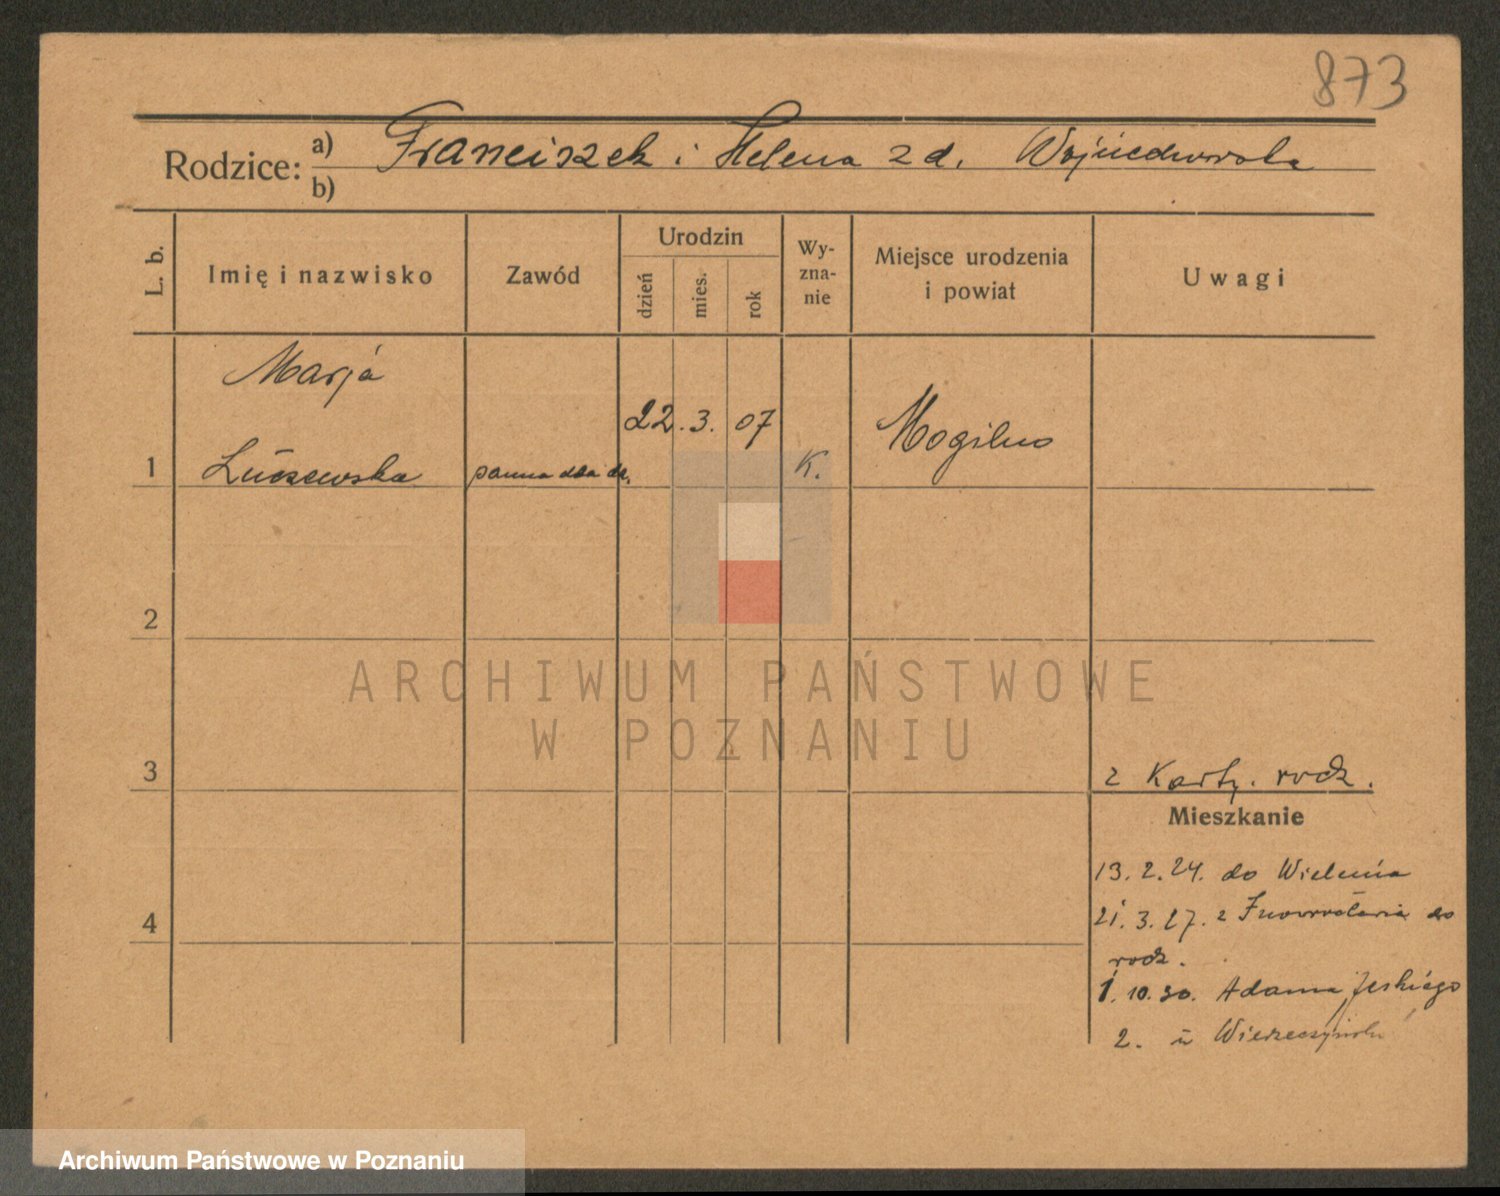 873
Rodzice: a) Franciszek i Helena z d.
b)
L. b. Imię i nazwisko Zawód Urodzin dzień mies. rok Wy-zna-nie Miejsce urodzenia i powiat Uwagi
Marja
22. 3. 07 Mogilno
1 panna K.
2
ARCHIWUM PAŃSTWOWE
W POZNANIU
3 z Karty. rodz.
Mieszkanie
13. 2. 24. do Wielenia
4 21. 3. 27. z do
rodz.
1. 10. 30. Adama
2. u
Archiwum Państwowe w Poznaniu